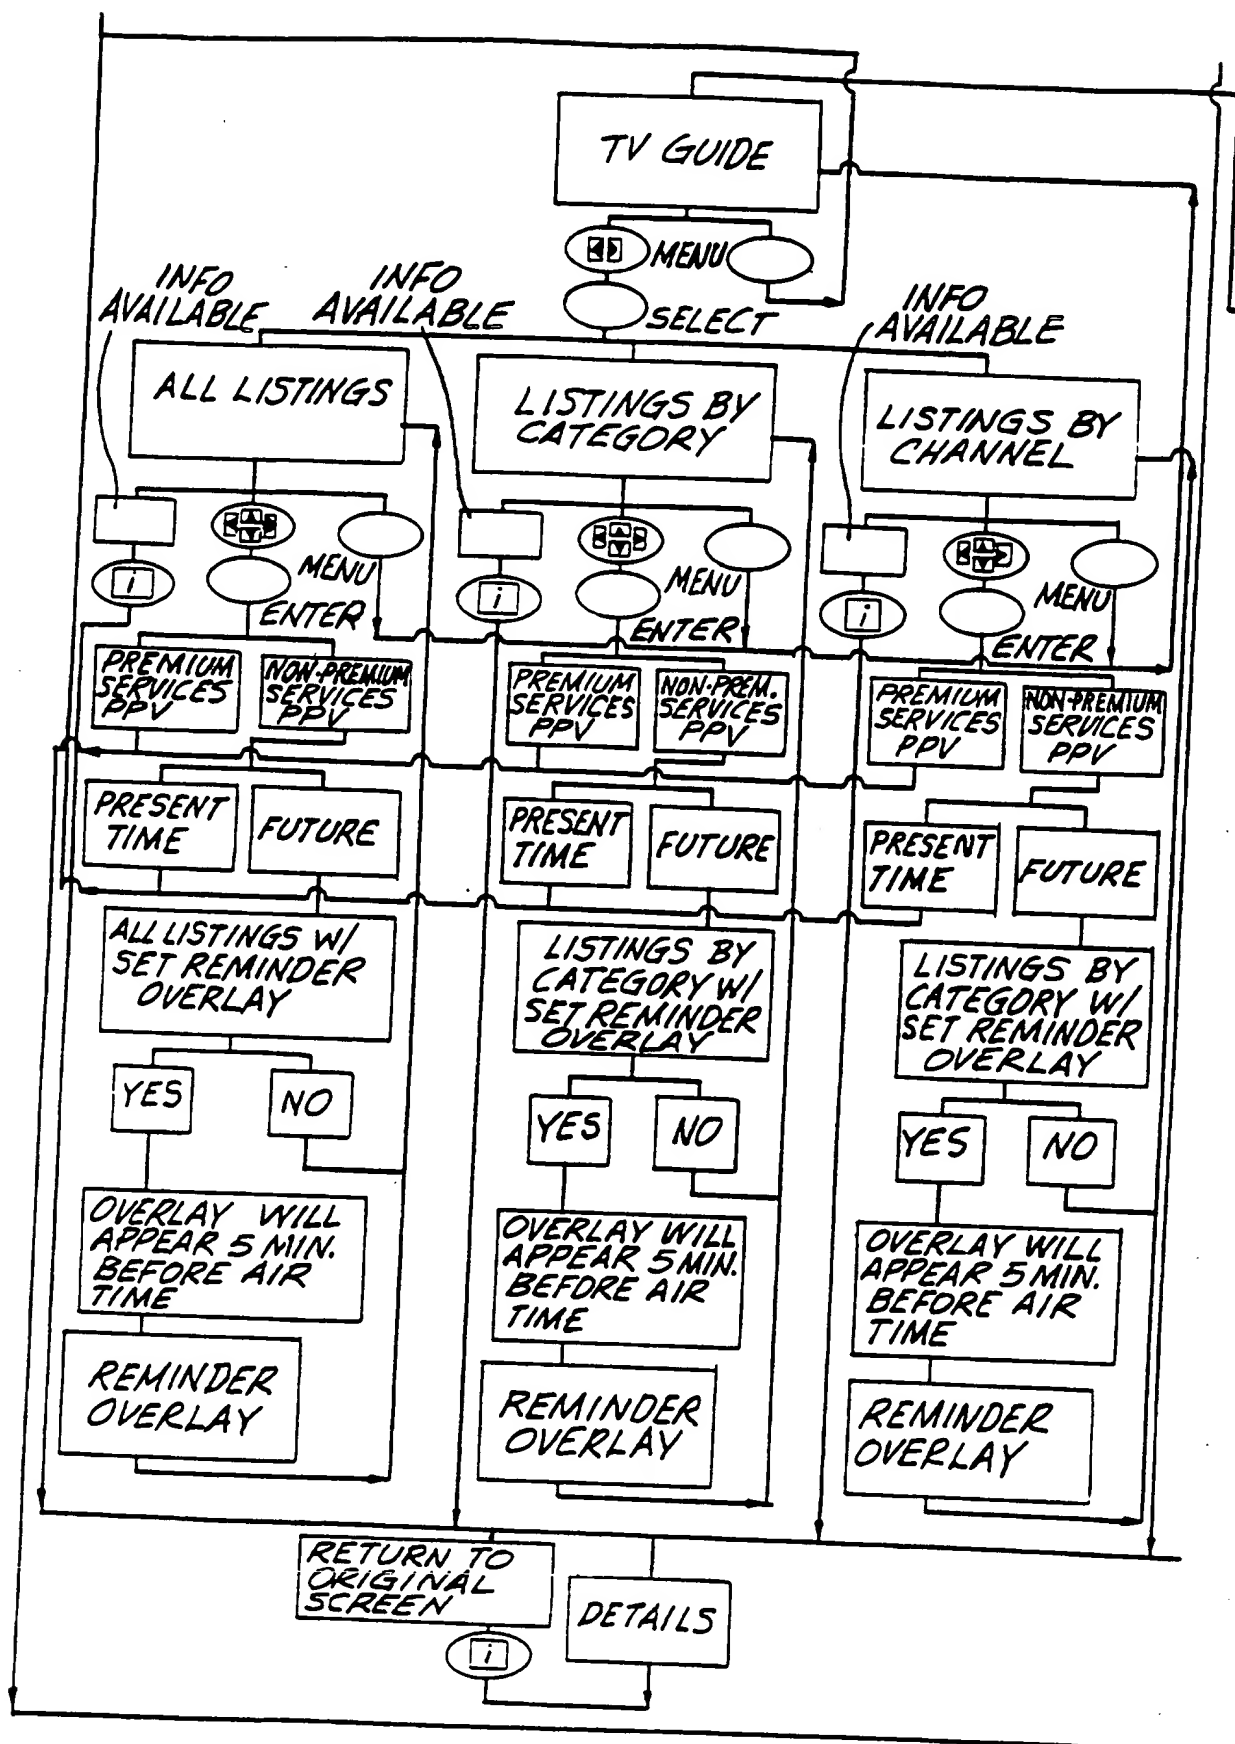 TV GUIDE
MENU
SELECT
INFO
AVAILABLE
INFO
AVAILABLE
INFO
AVAILABLE
ALL LISTINGS
LISTINGS BY
CATEGORY
LISTINGS BY
CHANNEL
i
MENU
ENTER
i
MENU
ENTER
i
MENU
ENTER
PREMIUM
SERVICES
PPV
NON-PREMIUM
SERVICES
PPV
PREMIUM
SERVICES
PPV
NON-PREM.
SERVICES
PPV
PREMIUM
SERVICES
PPV
NON-PREMIUM
SERVICES
PPV
PRESENT
TIME
FUTURE
PRESENT
TIME
FUTURE
PRESENT
TIME
FUTURE
ALL LISTINGS W/
SET REMINDER
OVERLAY
LISTINGS BY
CATEGORY W/
SET REMINDER
OVERLAY
LISTINGS BY
CATEGORY W/
SET REMINDER
OVERLAY
YES
NO
YES
NO
YES
NO
OVERLAY WILL
APPEAR 5 MIN.
BEFORE AIR
TIME
OVERLAY WILL
APPEAR 5 MIN.
BEFORE AIR
TIME
OVERLAY WILL
APPEAR 5 MIN.
BEFORE AIR
TIME
REMINDER
OVERLAY
REMINDER
OVERLAY
REMINDER
OVERLAY
RETURN TO
ORIGINAL
SCREEN
i
DETAILS